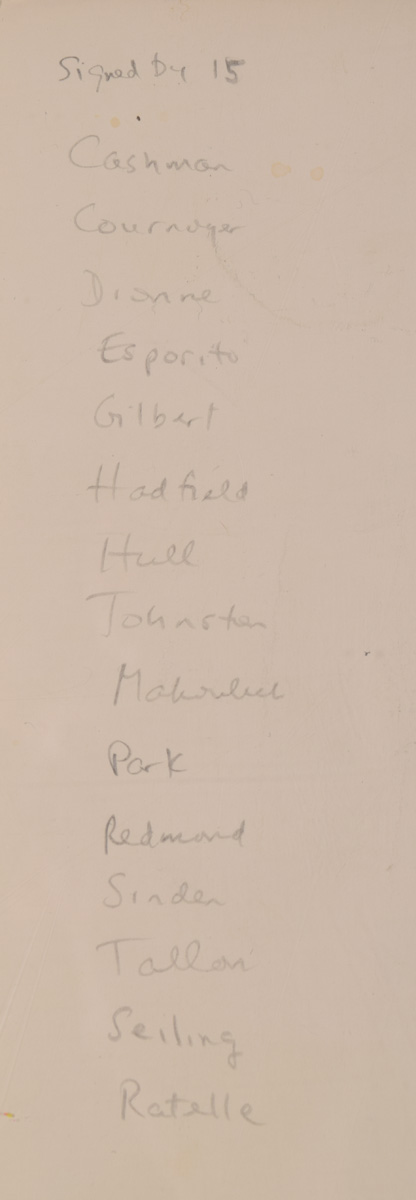 Signed by 15
Cashman
Cournoyer
Dionne
Esposito
Gilbert
Hadfield
Hull
Johnston
Mahovlich
Park
Redmond
Sinden
Tallon
Seiling
Ratelle